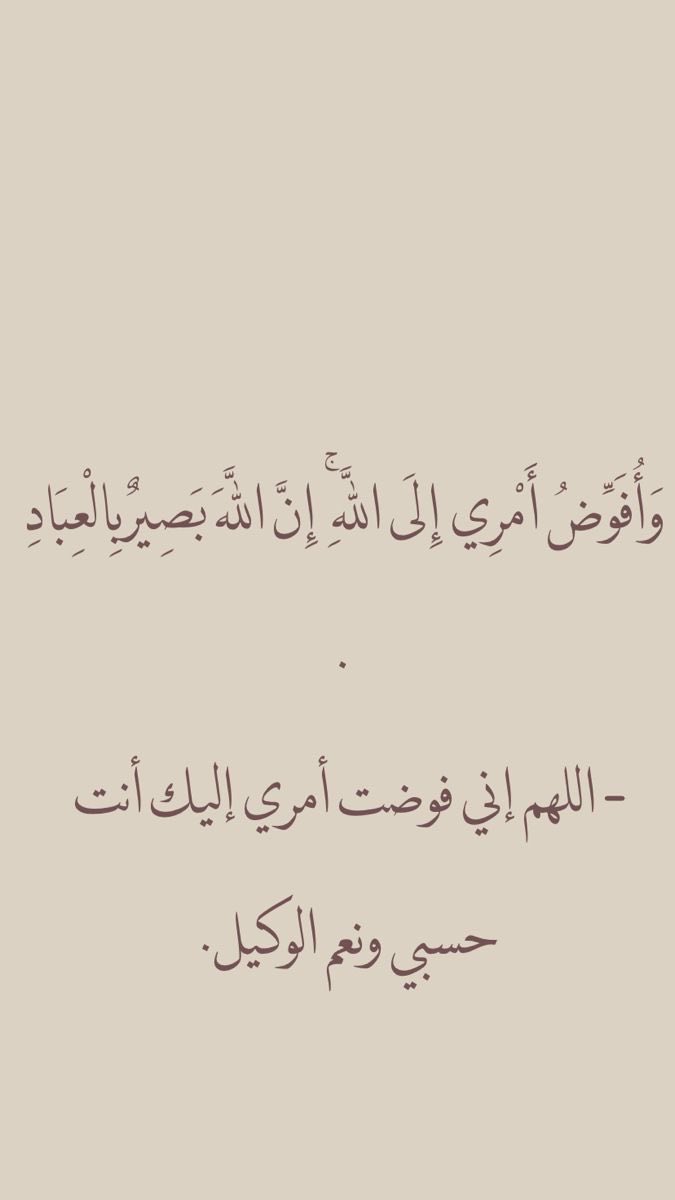 وَأُفَوِّضُ أَمْرِي إِلَى اللَّهِ ۚ إِنَّ اللَّهَ بَصِيرٌ بِالْعِبَادِ
.
- اللهم إني فوضت أمري إليك أنت
حسبي ونعم الوكيل.